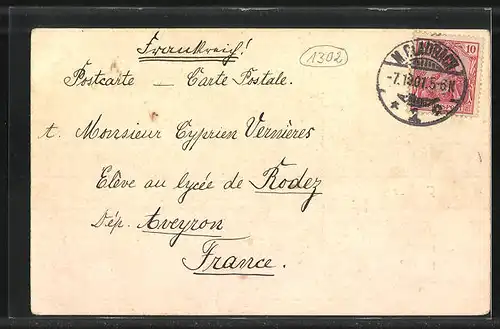 Frankreich!
1302
10
M. GLADBACH
-7.12.01.5-6N.
* 2 *
Postcarte — Carte Postale.
A. Monsieur Cyprien Vernières
Elève au lycée de Rodez
Dép. Aveyron
France.